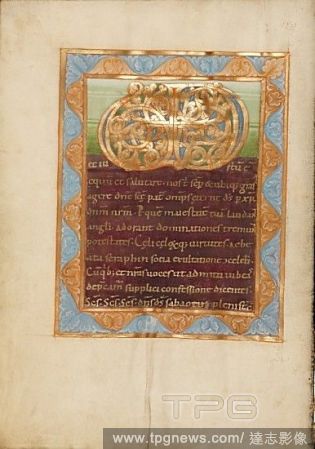 et iu stũ est
equũ et salutare nos t̃ sẽp &
agere dñe sc̃e pat̃ om̃ps
dñm nr̃m P quẽ maiestatẽ tuã laudan
angli adorant dominationes tremun
potestates Celi celoɋꝫ uirtutes ac be
ata seraphin socia exultatione cc̃eleb
Cũ qbꝫ et nr̃as uoces ut admitti iubeas
depcam̃ supplici confessione dicentes
Scs Scs Scs dñs ds̃ sabaoth pleni st̃ c
TPG
www.tpgnews.com/ 達志影像